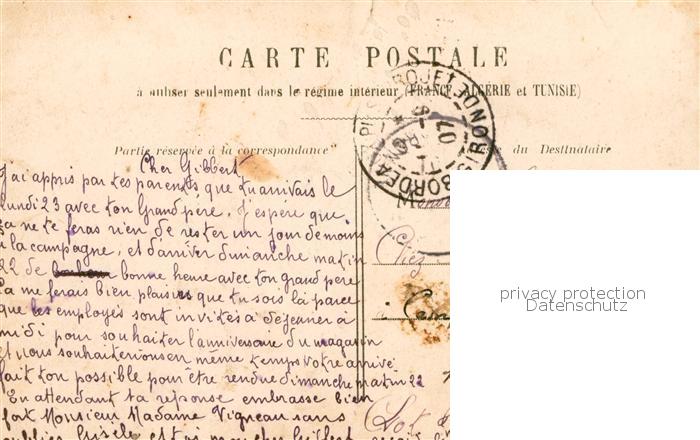 CARTE POSTALE
à utiliser seulement dans le régime intérieur (FRANCE, ALGÉRIE et TUNISIE)
Partie réservée à la correspondance
du Destinataire
Cher Gilbert
J'ai appris par tes parents que tu arrivais le
lundi 23 avec ton Grand père. J'espère que
ça ne te feras rien de rester un jour de moins
à la campagne, et d'arriver dimanche matin
22 de bonne heure avec ton grand père
Ça me ferais bien plaisir que tu sois là parce
que les employés sont invités à déjeuner à
midi pour souhaiter l'anniversaire du magasin
et nous souhaiterions en même temps votre arrivé
fait ton possible pour être rendue dimanche matin 22
En attendant ta réponse embrasse bien
fort Monsieur Madame Vigneau sans
oublier Gisèle et
Chez
Lot
privacy protection
Datenschutz